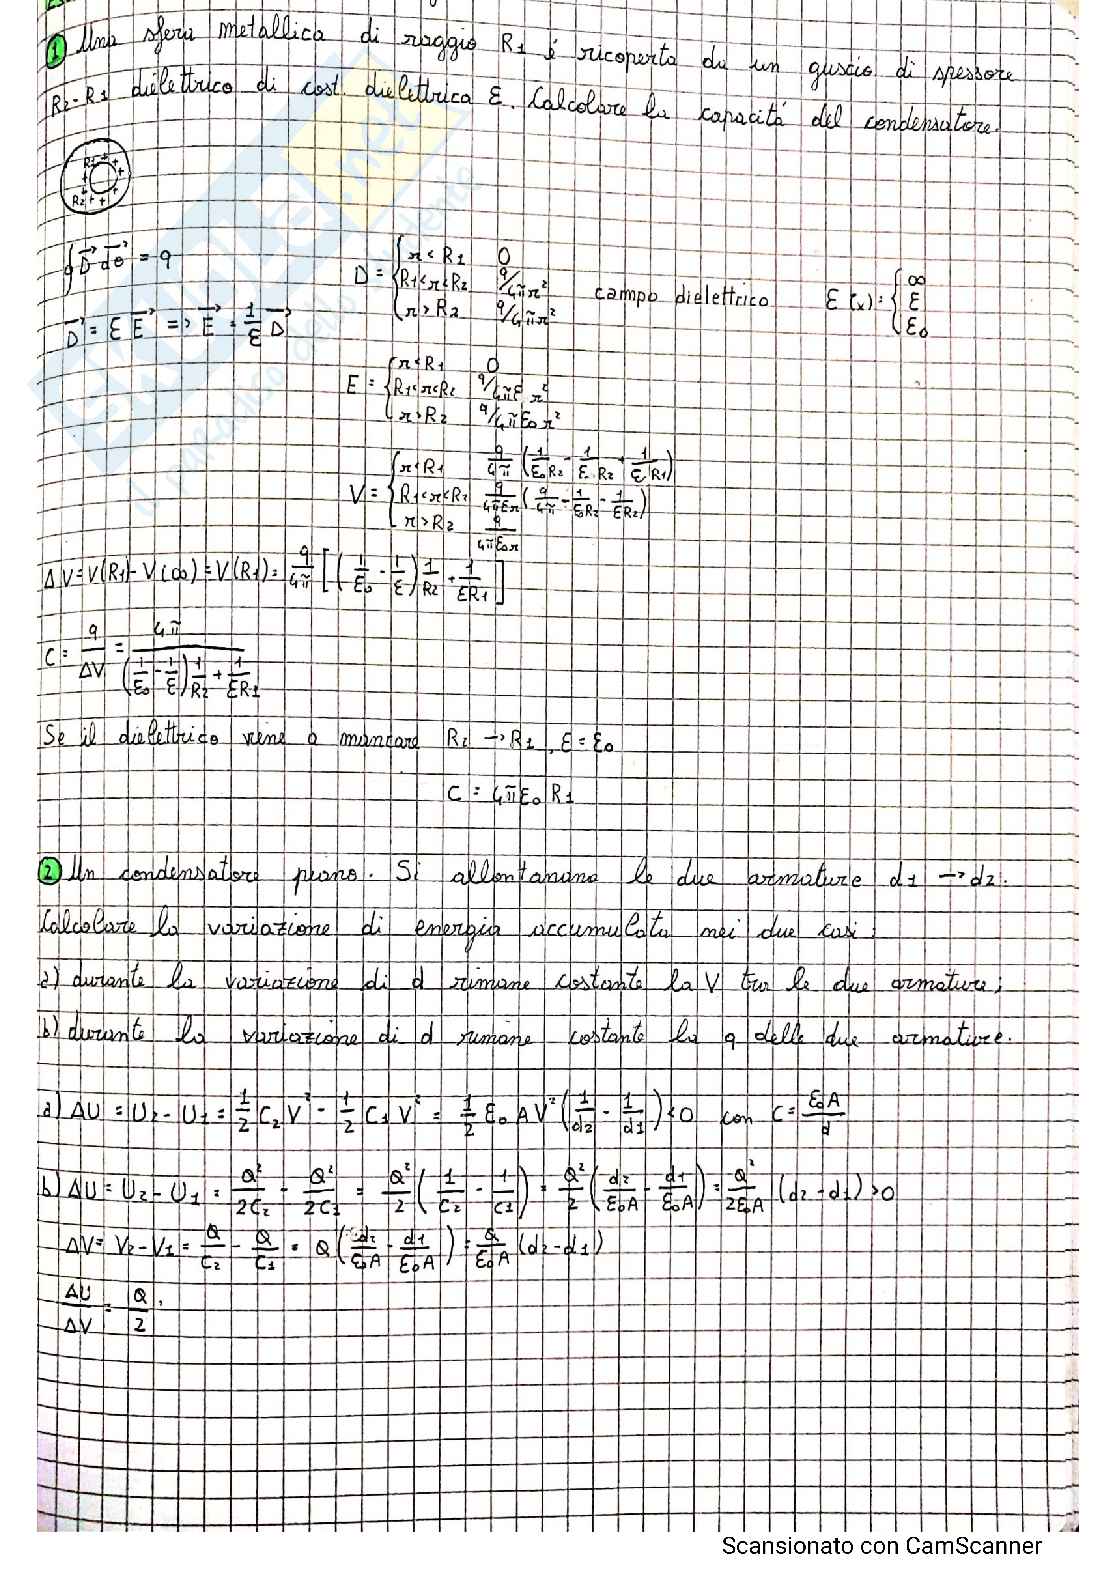 ① Una sfera metallica di raggio R1 é ricoperta da un guscio di spessore
R2-R1 dielettrico di cost. dielettrica ε. Calcolare la capacitá del condensatore.
R1 + + + + + + R2 + +
∮ D⃗ dσ⃗ = q
D = { r < R1 0
R1 < r < R2 q/4πr²
r > R2 q/4πr²
campo dielettrico ε(x) = { ∞ ε ε0
D⃗ = ε E⃗ => E⃗ = 1/ε D⃗
E = { r < R1 0
R1 < r < R2 q/4πε r²
r > R2 q/4πε0 r²
V = { r < R1 q/4π (1/ε0 R2 - 1/ε R2 + 1/ε R1)
R1 < r < R2 q/4πεr (q/4π - 1/ε0R2 - 1/εR2)
r > R2 q/4πε0r
ΔV = V(R1) - V(∞) = V(R1) = q/4π [(1/ε0 - 1/ε) 1/R2 + 1/εR1]
C = q/ΔV = 4π / ((1/ε0 - 1/ε) 1/R2 + 1/εR1)
Se il dielettrico viene a mancare R2 → R1, ε = ε0
C = 4πε0 R1
② Un condensatore piano. Si allontanano le due armature d1 → d2.
Calcolare la variazione di energia accumulata nei due casi:
a) durante la variazione di d rimane costante la V tra le due armature;
b) durante la variazione di d rimane costante la q delle due armature.
a) ΔU = U2 - U1 = 1/2 C2 V² - 1/2 C1 V² = 1/2 ε0 A V² (1/d2 - 1/d1) < 0 con C = ε0A/d
b) ΔU = U2 - U1 = Q²/2C2 - Q²/2C1 = Q²/2 (1/C2 - 1/C1) = Q²/2 (d2/ε0A - d1/ε0A) = Q²/2ε0A (d2 - d1) > 0
ΔV = V2 - V1 = Q/C2 - Q/C1 = Q (d2/ε0A - d1/ε0A) = Q/ε0A (d2 - d1)
ΔU/ΔV = Q/2.
Scansionato con CamScanner